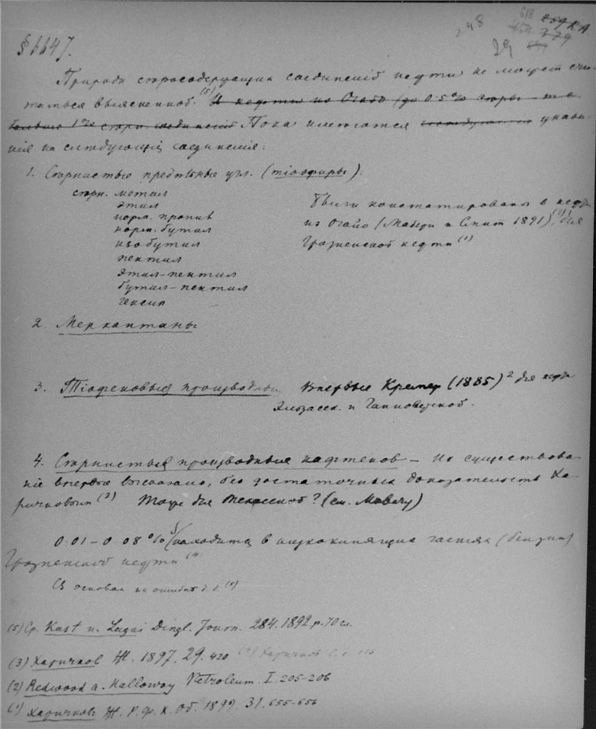 § 1147.
29
Природа серосодержащих соединений нефти не может счи-
таться выясненной. (5) И нефти из Огайо (до 0.5% серы
больше 1% серн. соединений Пока имеются указа-
ния на следующие соединения.
1. Сернистые предѣльные угл. (тіоэфиры).
серн. метил
этил
норм. пропил
норм. бутил
изо бутил
пентил
этил-пентил
бутил-пентил
гексил
Были констатированы в нефти
из Огайо (Мабери и Смит 1891), для
Грозненской нефти (1)
2. Меркаптаны
3. Тіофеновые производные. Впервые Кремер (1885)² для нефти
Эльзасск. и Ганноверской.
4. Сернистые производные нафтенов – Их существова-
ніе высказано, без достаточных доказательств Ха-
ричковым (3) Тоже для Техасской? (см. Мабери)
0.01 – 0.08% находится в низкокипящих частях (бензин)
Грозненской нефти
(5) Ср. Kast u. Lagai Dingl. Journ. 284. 1892. p. 70
(3) Харичков Ж. 1897. 29. 420 Харичков
(2) Redwood a. Holloway Petroleum. I. 205-206
(1) Харичков Ж. Р. Ф. Х. Об. 1899 31. 655-656